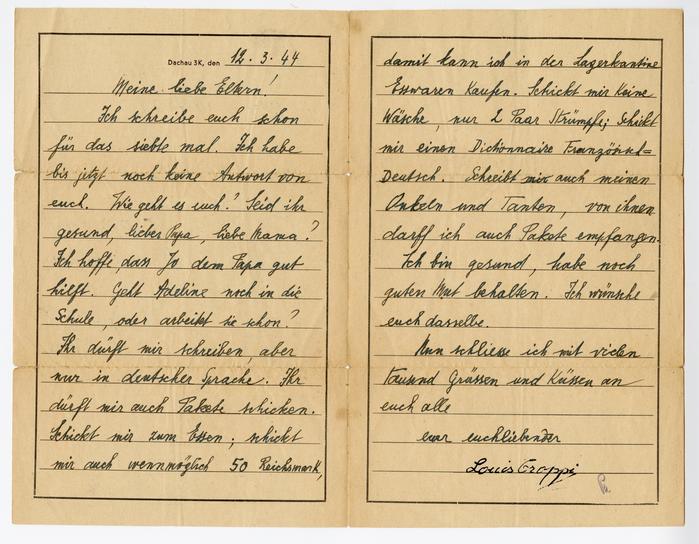 Dachau 3K, den 12.3.44
Meine liebe Eltern!
Ich schreibe euch schon
für das siebte mal. Ich habe
bis jetzt noch keine Antwort von
euch. Wie geht es euch? Seid ihr
gesund, lieber Papa, liebe Mama?
Ich hoffe, dass Jo dem Papa gut
hilft. Geht Adeline noch in die
Schule, oder arbeitet sie schon?
Ihr dürft mir schreiben, aber
nur in deutscher Sprache. Ihr
dürft mir auch Pakete schicken.
Schickt mir zum Essen; schickt
mir auch wennmöglich 50 Reichsmark,
damit kann ich in der Lagerkantine
Esswaren Kaufen. Schickt mir Keine
Wäsche, nur 2 Paar Strümpfe; Schickt
mir einen Dictionnaire Französisch=
Deutsch. Schreibt auch meinen
Onkeln und Tanten, von ihnen
darff ich auch Pakete empfangen.
Ich bin gesund, habe noch
guten Mut behalten. Ich wünsche
euch dasselbe.
Nun schliesse ich mit vielen
Tausend Grüssen und Küssen an
euch alle
euer euchliebender
Louis